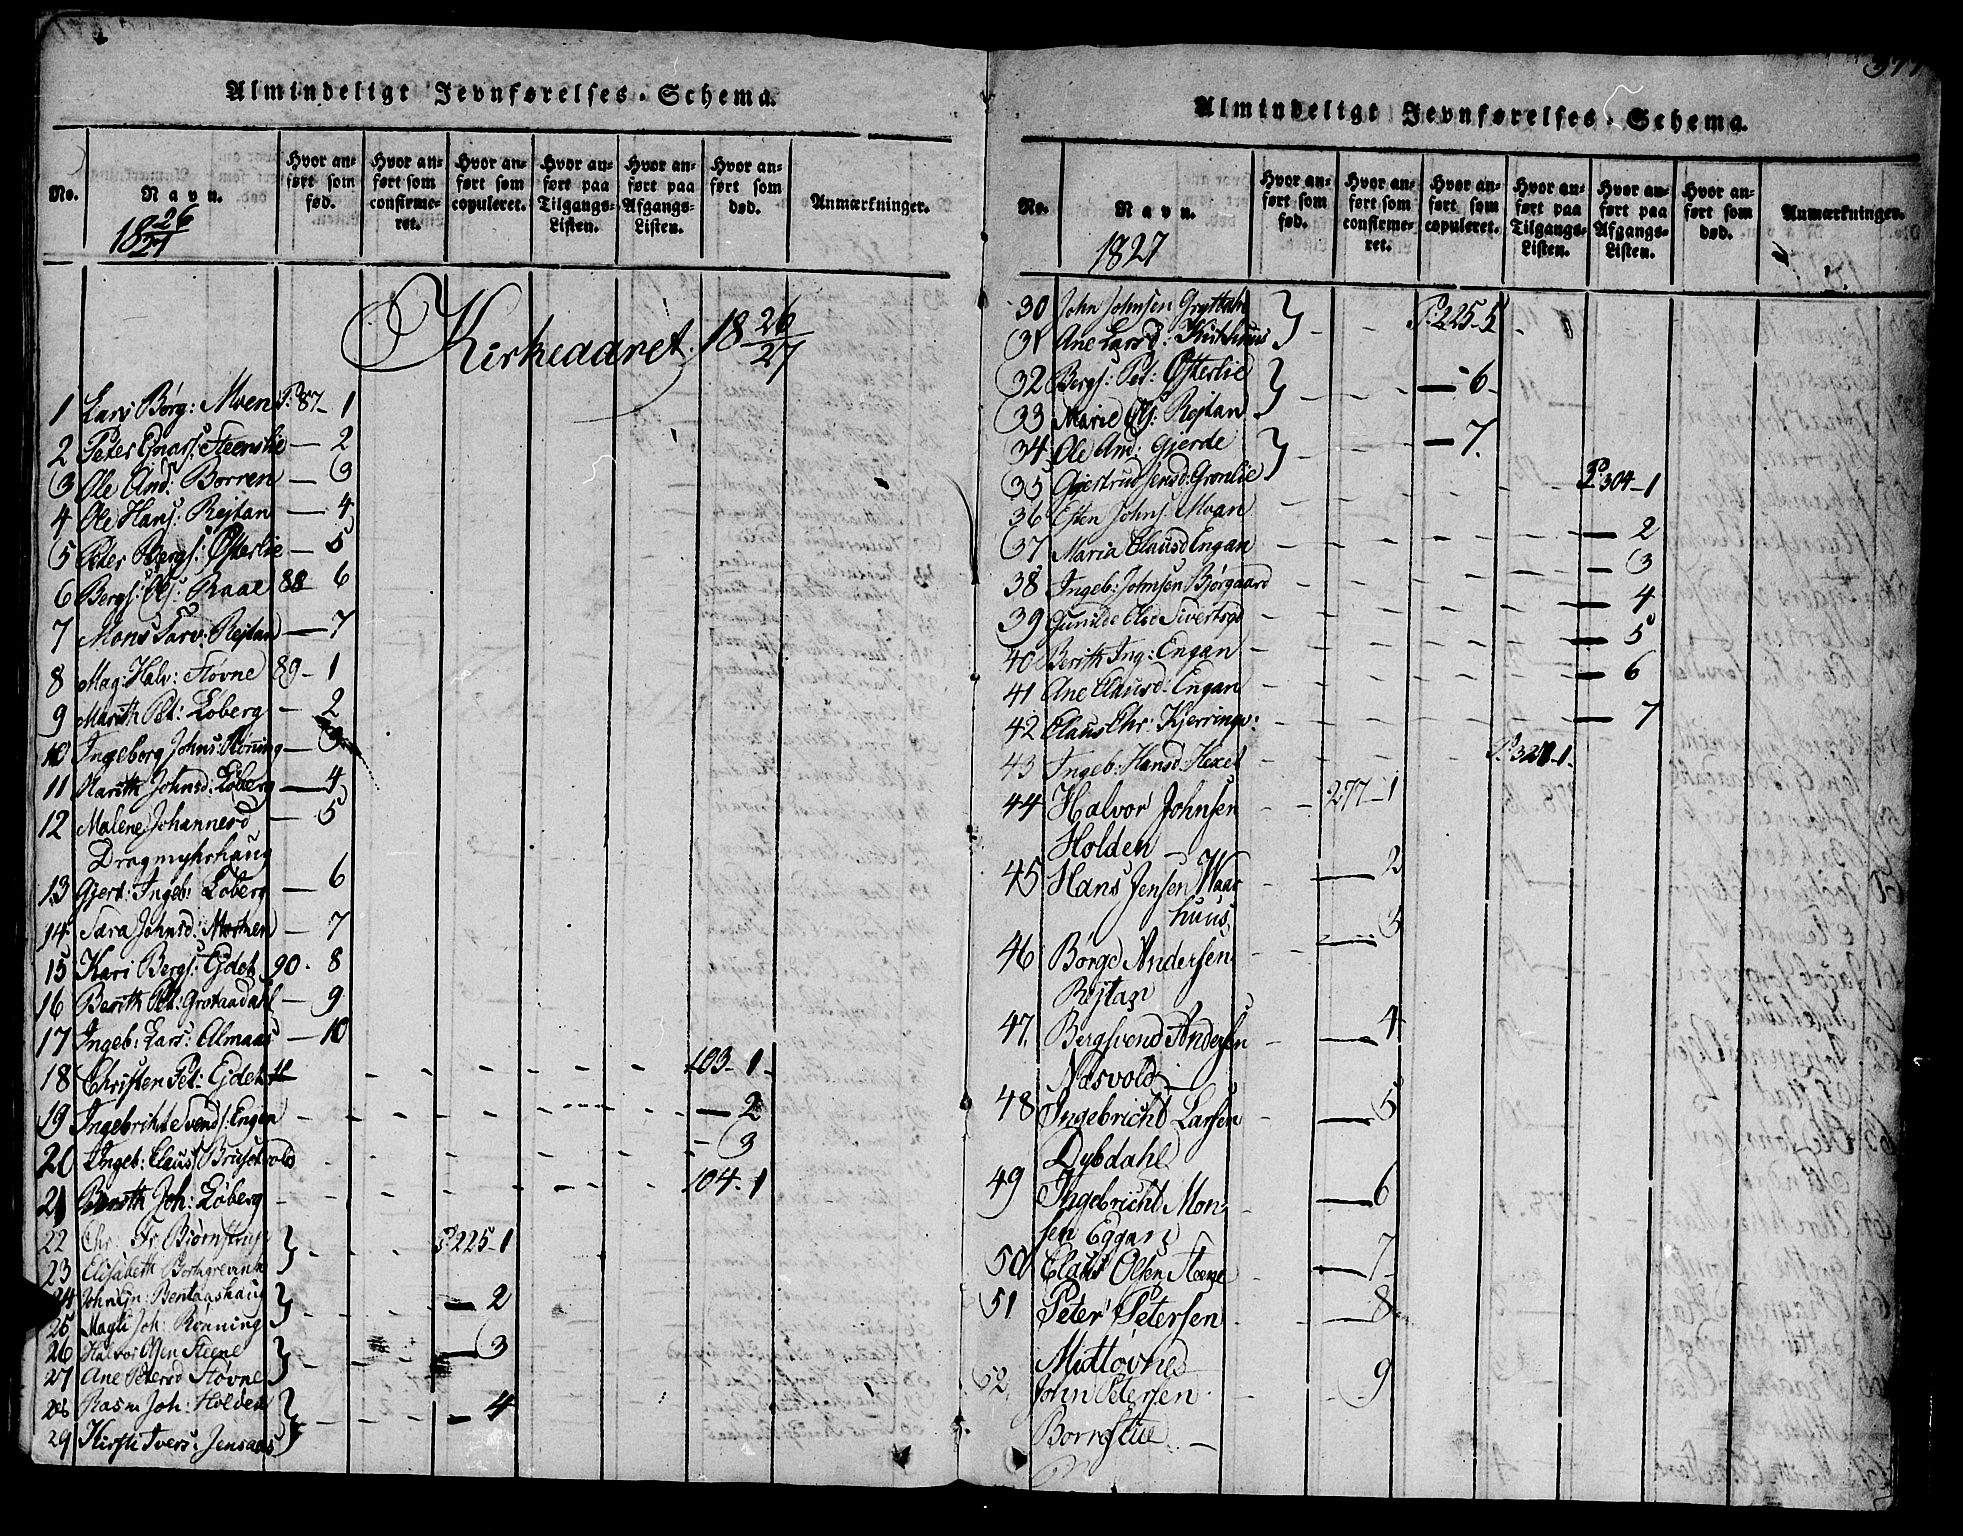 Almindeligt Jevnførelses-Schema.
No.
Navn.
1826/27
Hvor anført som fød.
Hvor anført som confirmeret.
Hvor anført som copuleret.
Hvor anført paa Tilgangs-Listen.
Hvor anført paa Afgangs-Listen.
Hvor anført som død.
Anmærkninger.
Kirkeaaret 1826/27
1 Lars Børg: Moen P. 87 - 1
2 Peter Steenslie — 2
3 Ole And: Borren — 3
4 Ole Hans: Rejtan — 4
5 Peter Bergs: Østerlie — 5
6 Bergs: Ols: Raae 88 6
7 Mons Tarv: Rejtan — 7
8 Mag: Halv: Støvne 89 - 1
9 Marith Pet: Løberg — 2
10 Ingeborg Johns: Rønning — 3
11 Marith Johnsd: Løberg — 4
12 Malene Johannesd — 5
Dragmyhrhaug
13 Gjert: Ingeb: Løberg — 6
14 Sara Johnsd: — 7
15 Kari Bergs: Ejdet 90 - 8
16 Berith Pet: Grøtaadahl — 9
17 Ingeb: Lars: Almaas — 10
18 Christen Pet: Ejdet 103 - 1
19 Ingebricht Svends: Engen — 2
20 Ingeb: Claus: — 3
21 Berith Joh: Løberg 104 - 1
22 Chr: Fr: Bjørnstrup } P. 225 - 1
23 Elisabeth Borchgrevink
24 John Bentaashaug } — 2
25 Magli Joh: Rønning
26 Halvor Olsen Steene } — 3
27 Ane Petersd Støvne
28 Rasm Joh: Holden } — 4
29 Kirsti Ivers: Jensaas
Almindeligt Jevnførelses-Schema.
No.
Navn.
1827
Hvor anført som fød.
Hvor anført som confirmeret.
Hvor anført som copuleret.
Hvor anført paa Tilgangs-Listen.
Hvor anført paa Afgangs-Listen.
Hvor anført som død.
Anmærkninger.
30 John Johnsen Gryttahn } P. 225 - 5
31 Ane Larsd:
32 Bergs: Ped: Østerlie } — 6
33 Marie Ols: Rejtan
34 Ole And: Gjerde } — 7
35 Gjertrud Jensd: Grønlie
36 Esten Johns: Moan P. 304 - 1
37 Maria Clausd Engan — 2
38 Ingeb: Johnsen Bjørgaard — 3
39 Gunilde Olsd Sivertsgd — 4
40 Berith Ing: Engan — 5
41 Ane Clausd: Engan — 6
42 Claus Chr: Kjerringv: — 7
43 Ingeb: Hansd: Hexel
44 Halvor Johnsen 277 - 1
Holden
45 Hans Jensen Waar — 2
huus
46 Børge Andersen — 3
Rejtan
47 Bergsvend Andersen — 4
Næsvold
48 Ingebricht Larsen — 5
Dybdahl
49 Ingebricht Mon — 6
sen Eggan
50 Claus Olsen Steene — 7
51 Peter Petersen — 8
Midtløvned
52 John Petersen 9
Borrøslie